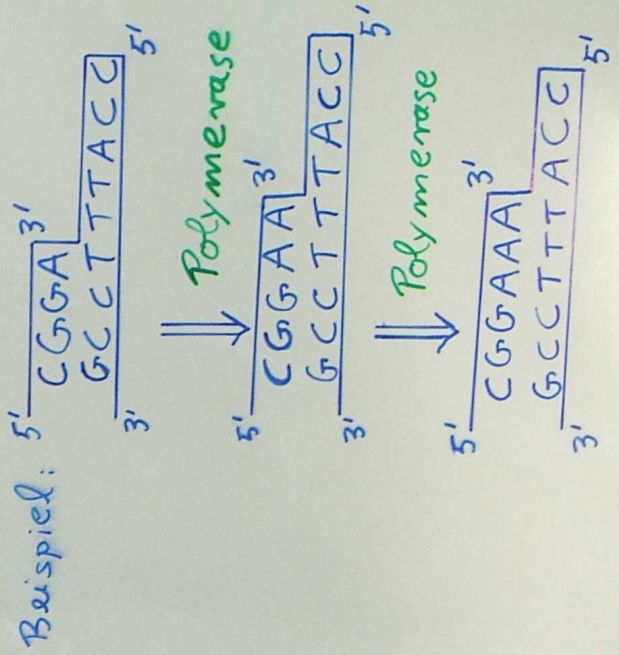 Beispiel:
5' CGGA 3'
3' GCCTTTACC 5'
Polymerase
5' CGGAA 3'
3' GCCTTTACC 5'
Polymerase
5' CGGAAA 3'
3' GCCTTTACC 5'